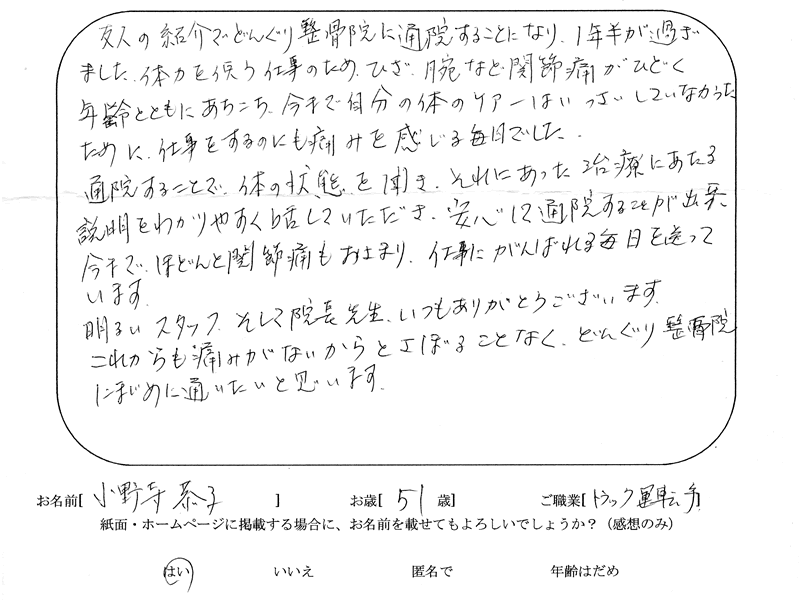 友人の紹介でどんぐり整骨院に通院することになり、1年半が過ぎ
ました。体力を使う仕事のため、ひざ、腕など関節痛がひどく
年齢とともにあちこち、今まで自分の体のケアーはいっさいしていなかった
ために、仕事をするのにも痛みを感じる毎日でした。
通院することで、体の状態を聞き、それにあった治療にあたる
説明をわかりやすく話していただき、安心して通院することが出来
今まで、ほどんと関節痛もおさまり、仕事にがんばれる毎日を送って
います。
明るいスタッフ、そして院長先生、いつもありがとうございます。
これからも痛みがないからとさぼることなく、どんぐり整骨院
にまじめに通いたいと思います。
お名前[ 小野寺 恭子 ] お歳[ 51 歳] ご職業[ トラック運転手 ]
紙面・ホームページに掲載する場合に、お名前を載せてもよろしいでしょうか？（感想のみ）
はい いいえ 匿名で 年齢はだめ